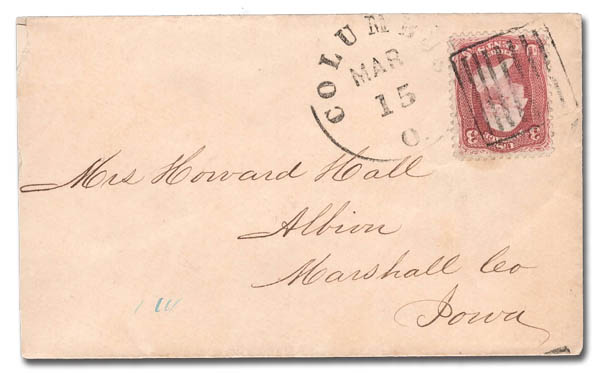 COLUMBUS
MAR
15
O.
3 3
Mrs Howard Hall
Albion
Marshall Co
Iowa